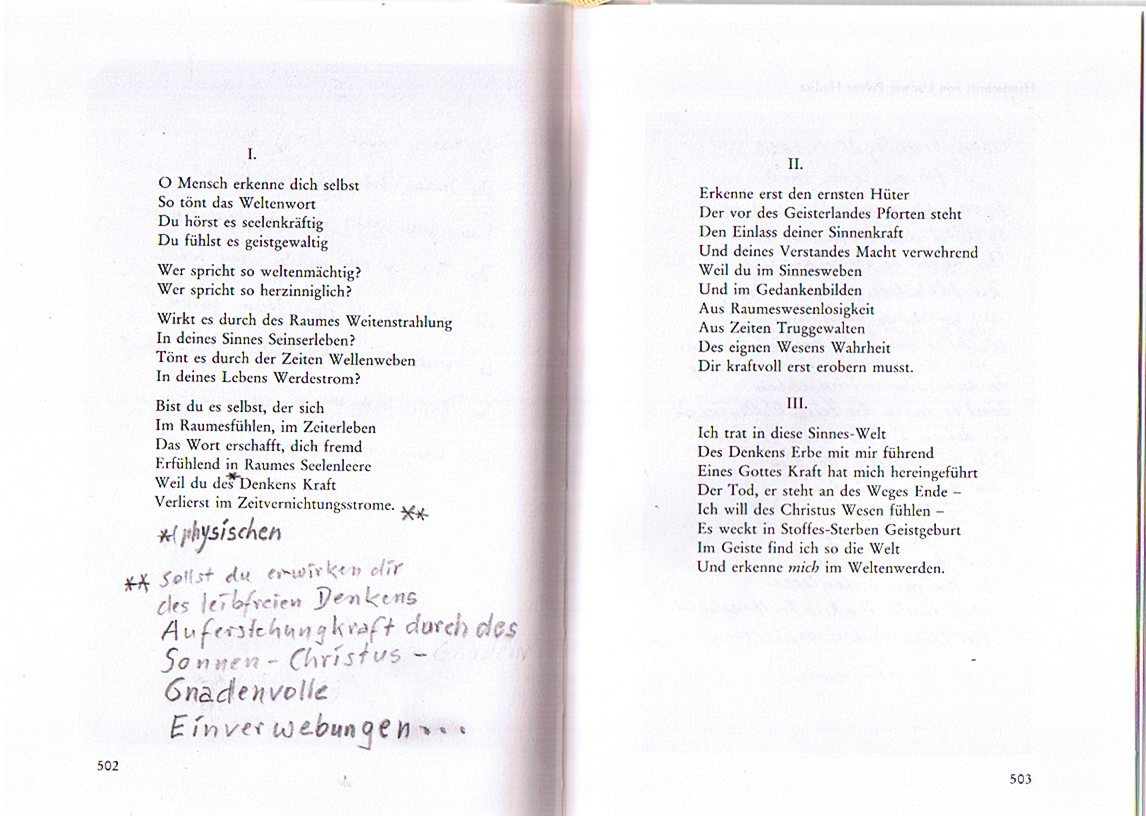 I.
O Mensch erkenne dich selbst
So tönt das Weltenwort
Du hörst es seelenkräftig
Du fühlst es geistgewaltig
Wer spricht so weltenmächtig?
Wer spricht so herzinniglich?
Wirkt es durch des Raumes Weitenstrahlung
In deines Sinnes Seinserleben?
Tönt es durch der Zeiten Wellenweben
In deines Lebens Werdestrom?
Bist du es selbst, der sich
Im Raumesfühlen, im Zeiterleben
Das Wort erschafft, dich fremd
Erfühlend in Raumes Seelenleere
Weil du des * Denkens Kraft
Verlierst im Zeitvernichtungsstrome. **
*(physischen
** sollst du erwirken dir
des leibfreien Denkens
Auferstehungkraft durch des
Sonnen - Christus -
Gnadenvolle
Einverwebungen...
502
II.
Erkenne erst den ernsten Hüter
Der vor des Geisterlandes Pforten steht
Den Einlass deiner Sinnenkraft
Und deines Verstandes Macht verwehrend
Weil du im Sinnesweben
Und im Gedankenbilden
Aus Raumeswesenlosigkeit
Aus Zeiten Truggewalten
Des eignen Wesens Wahrheit
Dir kraftvoll erst erobern musst.
III.
Ich trat in diese Sinnes-Welt
Des Denkens Erbe mit mir führend
Eines Gottes Kraft hat mich hereingeführt
Der Tod, er steht an des Weges Ende –
Ich will des Christus Wesen fühlen –
Es weckt in Stoffes-Sterben Geistgeburt
Im Geiste find ich so die Welt
Und erkenne mich im Weltenwerden.
503